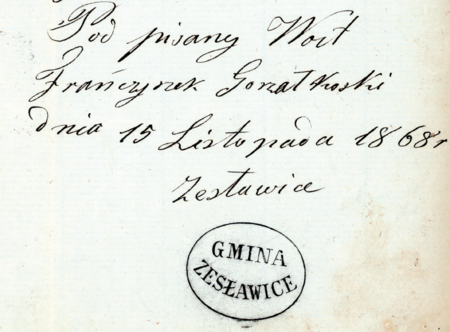 Pod pisany Woit
Frańczyzek Gorzałkoski
dnia 15 Listopada 1868r
Zesławice
GMINA
ZESŁAWICE